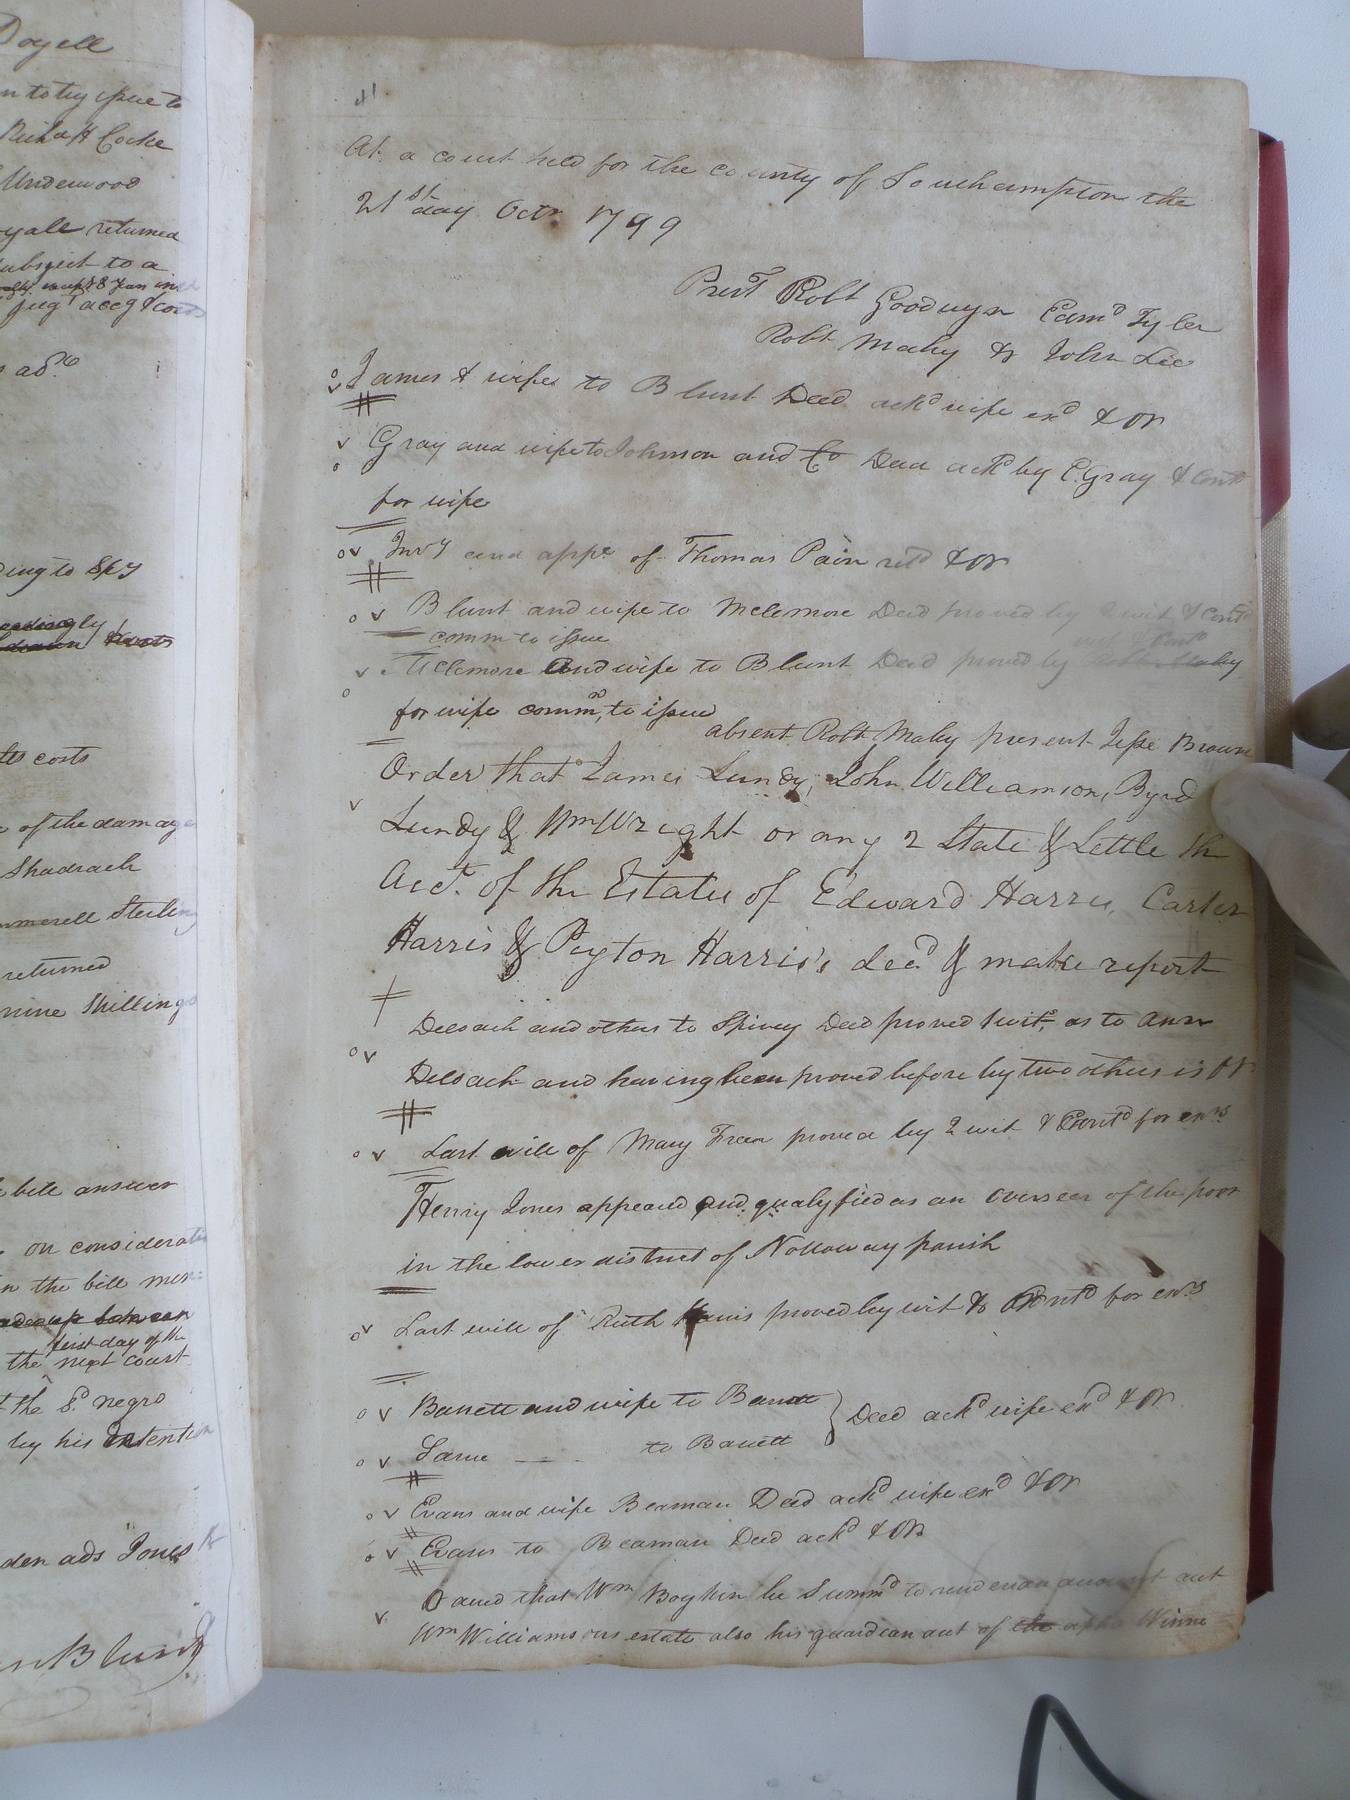 Doyell
n to try issue to
Richd H Cocke
Underwood
yale returned
subject to a
Jugt accg & costs
s ado
ding to Spy
ts costs
of the damage
Shadrach
mmerell Sterling
returned
nine Shillings
bill answer
on consideratio
n the bill men=
first day of the
the next court
t the sd negro
by his intention
den ads Jones
n Blunt
41
At a court held for the county of Southampton the
21st day Octr 1799
Prest Robt Goodwyn Edmd Tyler
Robt Maby & John Lee
James & wife to Blunt Deed ackd wife exd & OR
Gray and wife to Johnson and Co Deed ackd by E. Gray & contd
for wife
Invy and appt of Thomas Pain retd & OR
Blunt and wife to Mclemore Deed proved by 2 wit & Contd
comm to issue
Mclemore and wife to Blunt Deed proved by
for wife commn to issue
absent Robt Maby present Jesse Browne
Order that James Lundy, John Williamson, Byrd
Lundy & Wm Wright or any 2 State & Settle th
Acct. of the Estates of Edward Harris, Carter
Harris & Peyton Harris's decd & make report
Deloach and others to Spivey Deed proved 1 wit, as to Ann
Deloach and having been proved before by two others is OR
Last will of Mary Treen proved by 2 wit & Contd for exrs
Henry Jones appeared and qualyfied as an overseer of the poor
in the lower district of Nottoway parish
Last will of Ruth proved by wit & Contd for exrs
Barrett and wife to Barrett } Deed ackd wife exd & OR
Same to Barrett
Evans and wife Beaman Deed ackd wife exd & OR
Evans to Beaman Deed ackd & OR
Oaued that Wm Boykin be Summd to render an account act
Wm Williamsons estate also his guardian act of the Winne